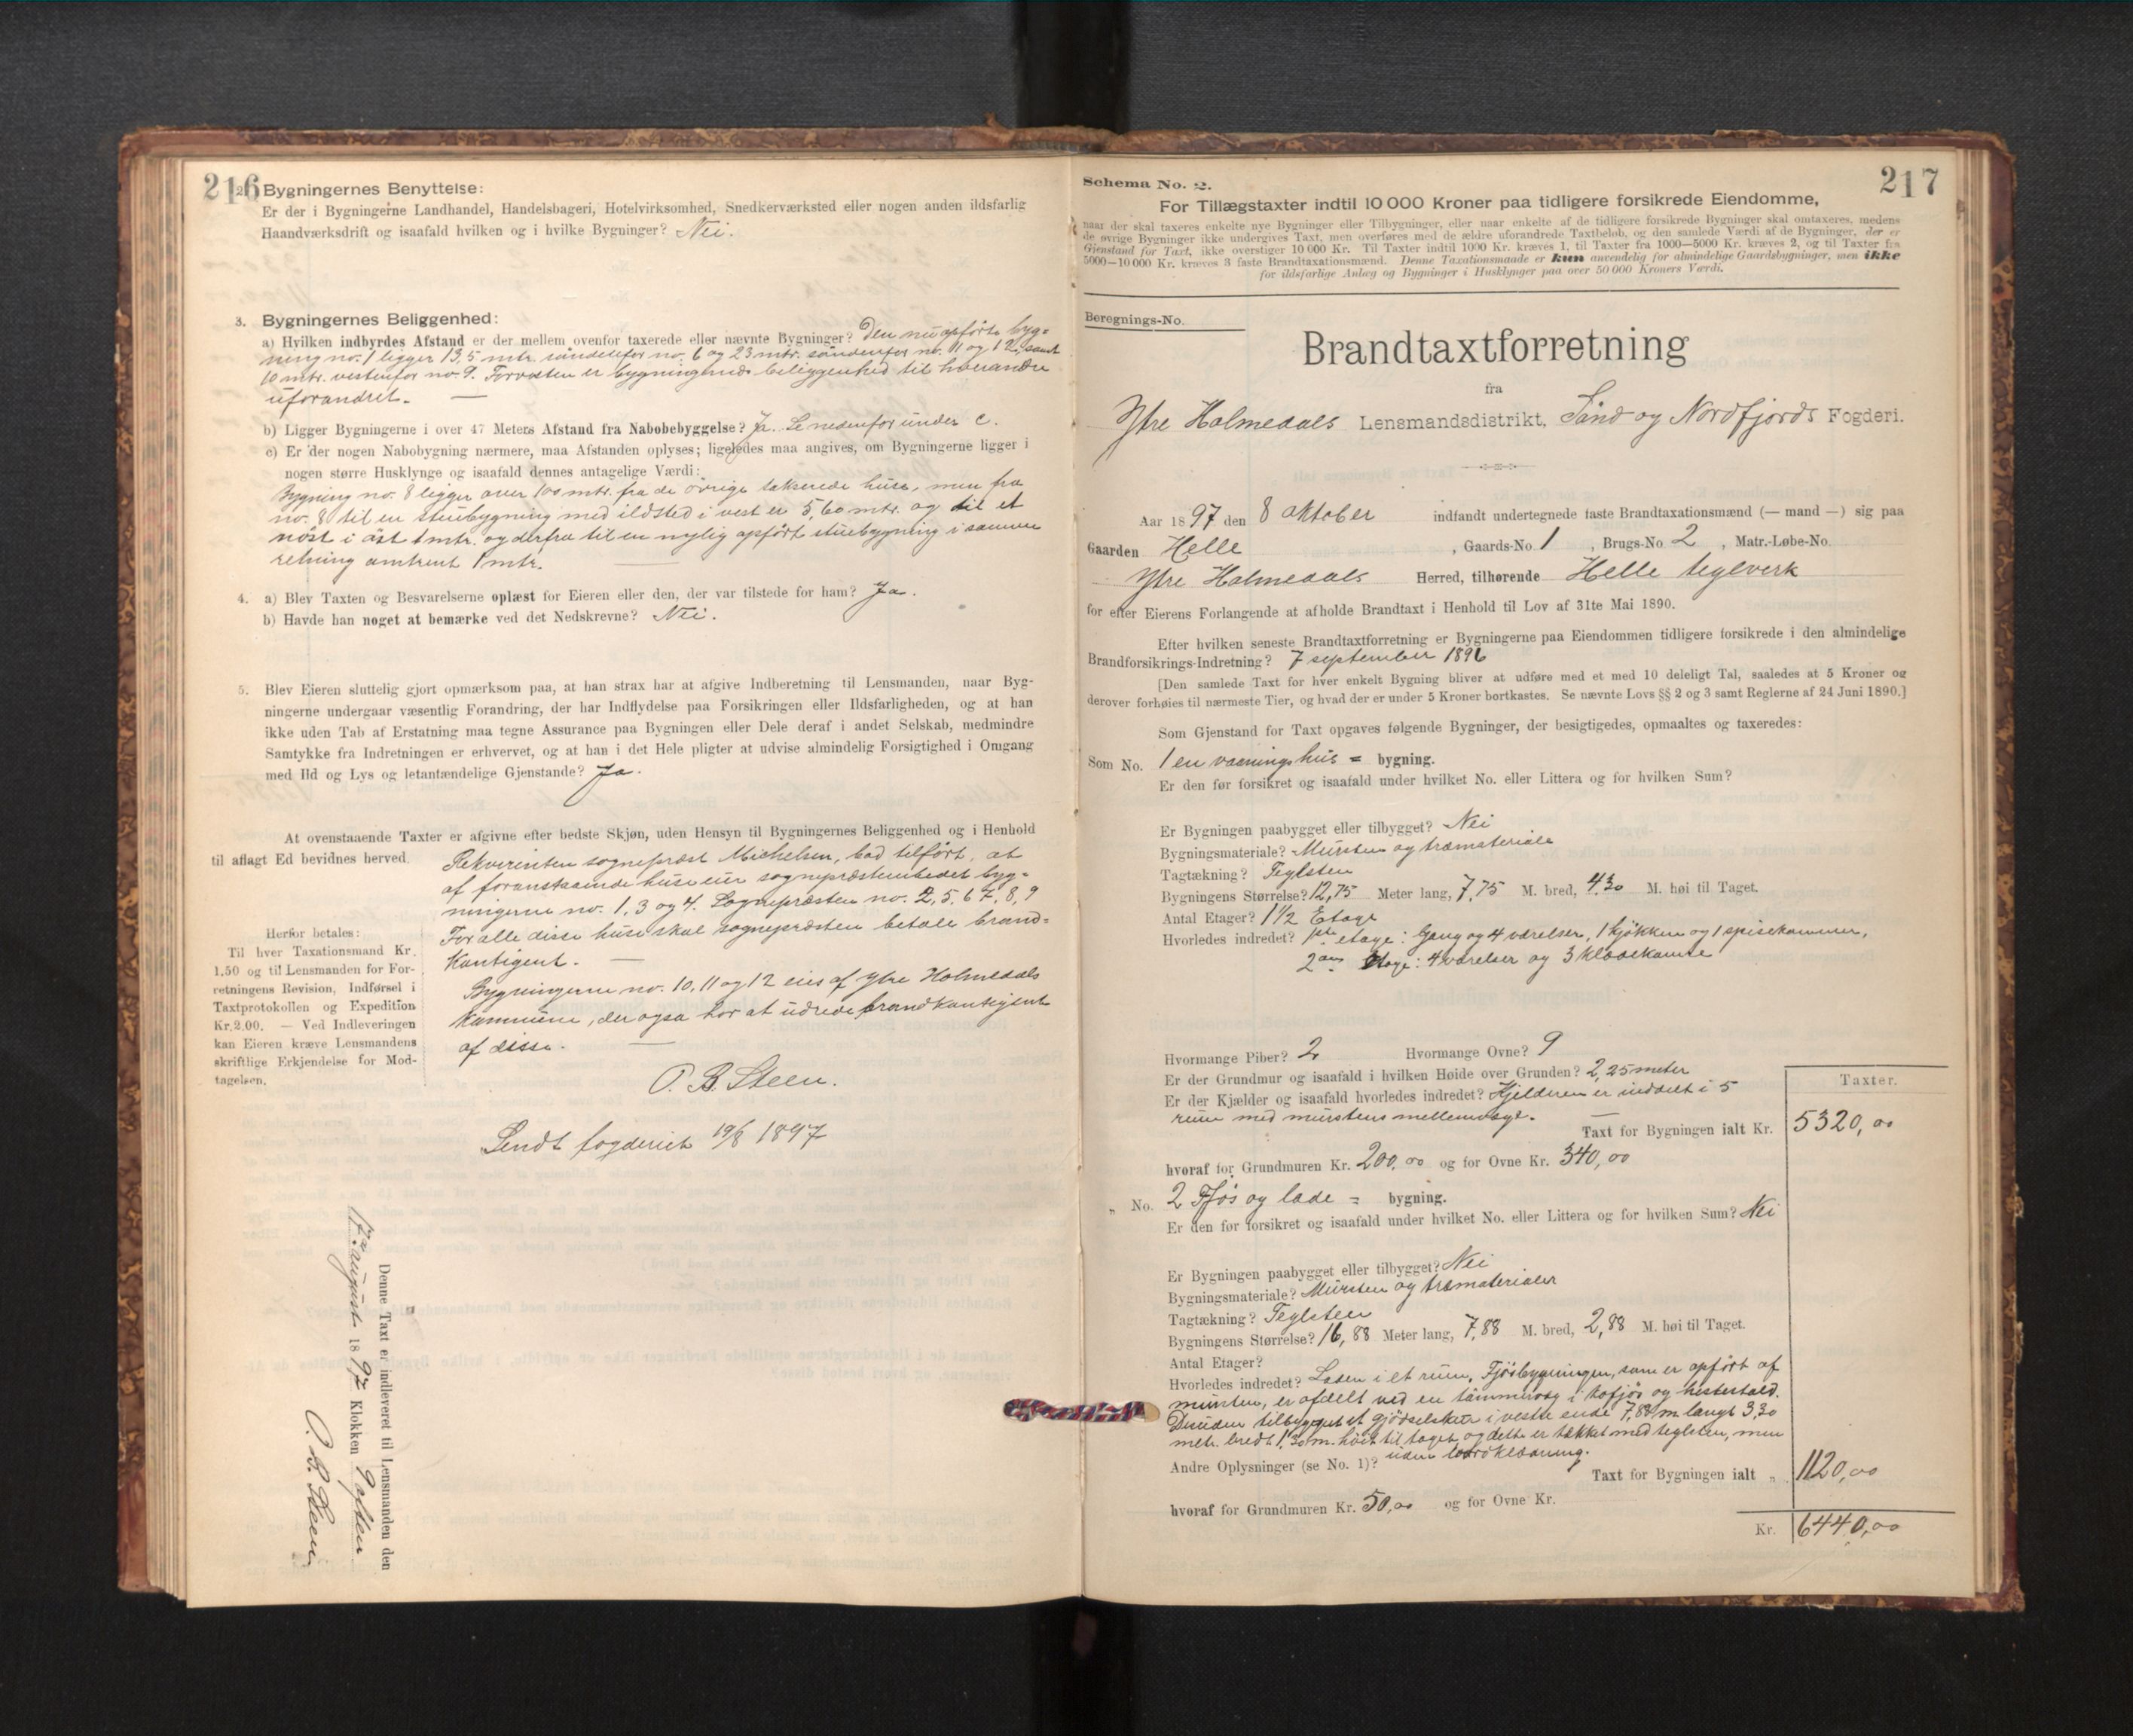 216
2. Bygningernes Benyttelse:
Er der i Bygningerne Landhandel, Handelsbageri, Hotelvirksomhed, Snedkerværksted eller nogen anden ildsfarlig
Haandværksdrift og isaafald hvilken og i hvilke Bygninger? Nei.
3. Bygningernes Beliggenhed:
a) Hvilken indbyrdes Afstand er der mellem ovenfor taxerede eller nævnte Bygninger? Den nuopførte byg-
ning no. 1 ligger 13,5 mtr. söndenfor no. 6 og 23 mtr. söndenfor no. 11 og 12, samt
10 mtr. vestenfor no. 9. Forresten er bygningernes beliggenhed til hverandre
uforandret. —
b) Ligger Bygningerne i over 47 Meters Afstand fra Nabobebyggelse? Ja. Se nedenfor under c.
c) Er der nogen Nabobygning nærmere, maa Afstanden oplyses; ligeledes maa angives, om Bygningerne ligger i
nogen større Husklynge og isaafald dennes antagelige Værdi:
Bygning no. 8 ligger over 100 mtr. fra de övrige takserede huse, men fra
no. 8 til en stuebygning med ildsted i vest er 5,60 mtr. og til et
nöst i öst 1 mtr. og derfra til en nylig opfört stuebygning i samme
retning omtrent 1 mtr.
4. a) Blev Taxten og Besvarelserne oplæst for Eieren eller den, der var tilstede for ham? Ja.
b) Havde han noget at bemærke ved det Nedskrevne? Nei.
5. Blev Eieren sluttelig gjort opmærksom paa, at han strax har at afgive Indberetning til Lensmanden, naar Byg-
ningerne undergaar væsentlig Forandring, der har Indflydelse paa Forsikringen eller Ildsfarligheden, og at han
ikke uden Tab af Erstatning maa tegne Assurance paa Bygningen eller Dele deraf i andet Selskab, medmindre
Samtykke fra Indretningen er erhvervet, og at han i det Hele pligter at udvise almindelig Forsigtighed i Omgang
med Ild og Lys og letantændelige Gjenstande? Ja.
At ovenstaaende Taxter er afgivne efter bedste Skjøn, uden Hensyn til Bygningernes Beliggenhed og i Henhold
til aflagt Ed bevidnes herved.
Rekvirenten sogneprest Michelsen, bad tilfört, at
af foranstaaende huse eier sogneprestembedet byg-
ningerne no. 1, 3 og 4. Sognepresten no. 2, 5, 6 7, 8, 9
For alle disse huse skal sognepresten betale brand-
kontigent. —
Bygningerne no. 10, 11 og 12 eies af Ytre Holmedals
kommune, der ogsa har at udrede brandkontigent
af disse. —
O. B. Steen.
Sendt fogderiet 19/8 1897
Herfor betales:
Til hver Taxationsmand Kr.
1.50 og til Lensmanden for For-
retningens Revision, Indførsel i
Taxtprotokollen og Expedition
Kr. 2.00. — Ved Indleveringen
kan Eieren kræve Lensmandens
skriftlige Erkjendelse for Mod-
tagelsen.
Denne Taxt er indleveret til Lensmanden den
17de august 1897 Klokken 9 aften
O. B. Steen
217
Schema No. 2.
For Tillægstaxter indtil 10 000 Kroner paa tidligere forsikrede Eiendomme,
naar der skal taxeres enkelte nye Bygninger eller Tilbygninger, eller naar enkelte af de tidligere forsikrede Bygninger skal omtaxeres, medens
de øvrige Bygninger ikke undergives Taxt, men overføres med de ældre uforandrede Taxtbeløb, og den samlede Værdi af de Bygninger, der er
Gjenstand for Taxt, ikke overstiger 10 000 Kr. Til Taxter indtil 1000 Kr. kræves 1, til Taxter fra 1000—5000 Kr. kræves 2, og til Taxter fra
5000—10 000 Kr. kræves 3 faste Brandtaxationsmænd. Denne Taxationsmaade er kun anvendelig for almindelige Gaardsbygninger, men ikke
for ildsfarlige Anlæg og Bygninger i Husklynger paa over 50 000 Kroners Værdi.
Beregnings-No.
Brandtaxtforretning
fra
Ytre Holmedals Lensmandsdistrikt, Sönd og Nordfjords Fogderi.
Aar 1897 den 8 oktober indfandt undertegnede faste Brandtaxationsmænd (— mand —) sig paa
Gaarden Helle, Gaards-No 1, Brugs-No 2, Matr.-Løbe-No.
Ytre Holmedals Herred, tilhørende Helle teglverk
for efter Eierens Forlangende at afholde Brandtaxt i Henhold til Lov af 31te Mai 1890.
Efter hvilken seneste Brandtaxtforretning er Bygningerne paa Eiendommen tidligere forsikrede i den almindelige
Brandforsikrings-Indretning? 7 september 1896
[Den samlede Taxt for hver enkelt Bygning bliver at udføre med et med 10 deleligt Tal, saaledes at 5 Kroner og
derover forhøies til nærmeste Tier, og hvad der er under 5 Kroner bortkastes. Se nævnte Lovs §§ 2 og 3 samt Reglerne af 24 Juni 1890.]
Som Gjenstand for Taxt opgaves følgende Bygninger, der besigtigedes, opmaaltes og taxeredes:
Som No. 1 en vaaningshus = bygning.
Er den før forsikret og isaafald under hvilket No. eller Littera og for hvilken Sum?
Er Bygningen paabygget eller tilbygget? Nei
Bygningsmateriale? Mursten og træmateriale
Tagtækning? Teglsten
Bygningens Størrelse? 12,75 Meter lang, 7,75 M. bred, 4,30 M. høi til Taget.
Antal Etager? 1 1/2 Etage
Hvorledes indredet? 1ste etage: Gang og 4 værelser, 1 kjökken og 1 spisekammer,
2den Etage: 4 værelser og 3 klædekamre
Hvormange Piber? 2 Hvormange Ovne? 9
Er der Grundmur og isaafald i hvilken Høide over Grunden? 2,25 meter
Er der Kjælder og isaafald hvorledes indredet? Kjelderen er inddelt i 5
rum med murstens mellemvæge. —
Taxter.
Taxt for Bygningen ialt Kr. 5320,00
hvoraf for Grundmuren Kr. 200,00 og for Ovne Kr. 340,00
„ No. 2 Fjös og lade = bygning.
Er den før forsikret og isaafald under hvilket No. eller Littera og for hvilken Sum? Nei
Er Bygningen paabygget eller tilbygget? Nei
Bygningsmateriale? Mursten og træmaterialer
Tagtækning? Teglsten
Bygningens Størrelse? 16,88 Meter lang, 7,88 M. bred, 2,88 M. høi til Taget.
Antal Etager?
Hvorledes indredet? Laden i et rum, Fjösbygningen, som er opfört af
mursten, er afdelt ved en tömmervæg i kofjös og hestestald.
Desuden tilbygget et gjödselskur i vestre ende 7,88 m langt 3,30
metr. bredt 1,30 m. höit til taget, og dette er tækket med teglsten, men
uden bordklædning.
Andre Oplysninger (se No. 1)?
Taxt for Bygningen ialt „ 1120,00
hvoraf for Grundmuren Kr. 50,00 og for Ovne Kr.
Kr. 6440,00